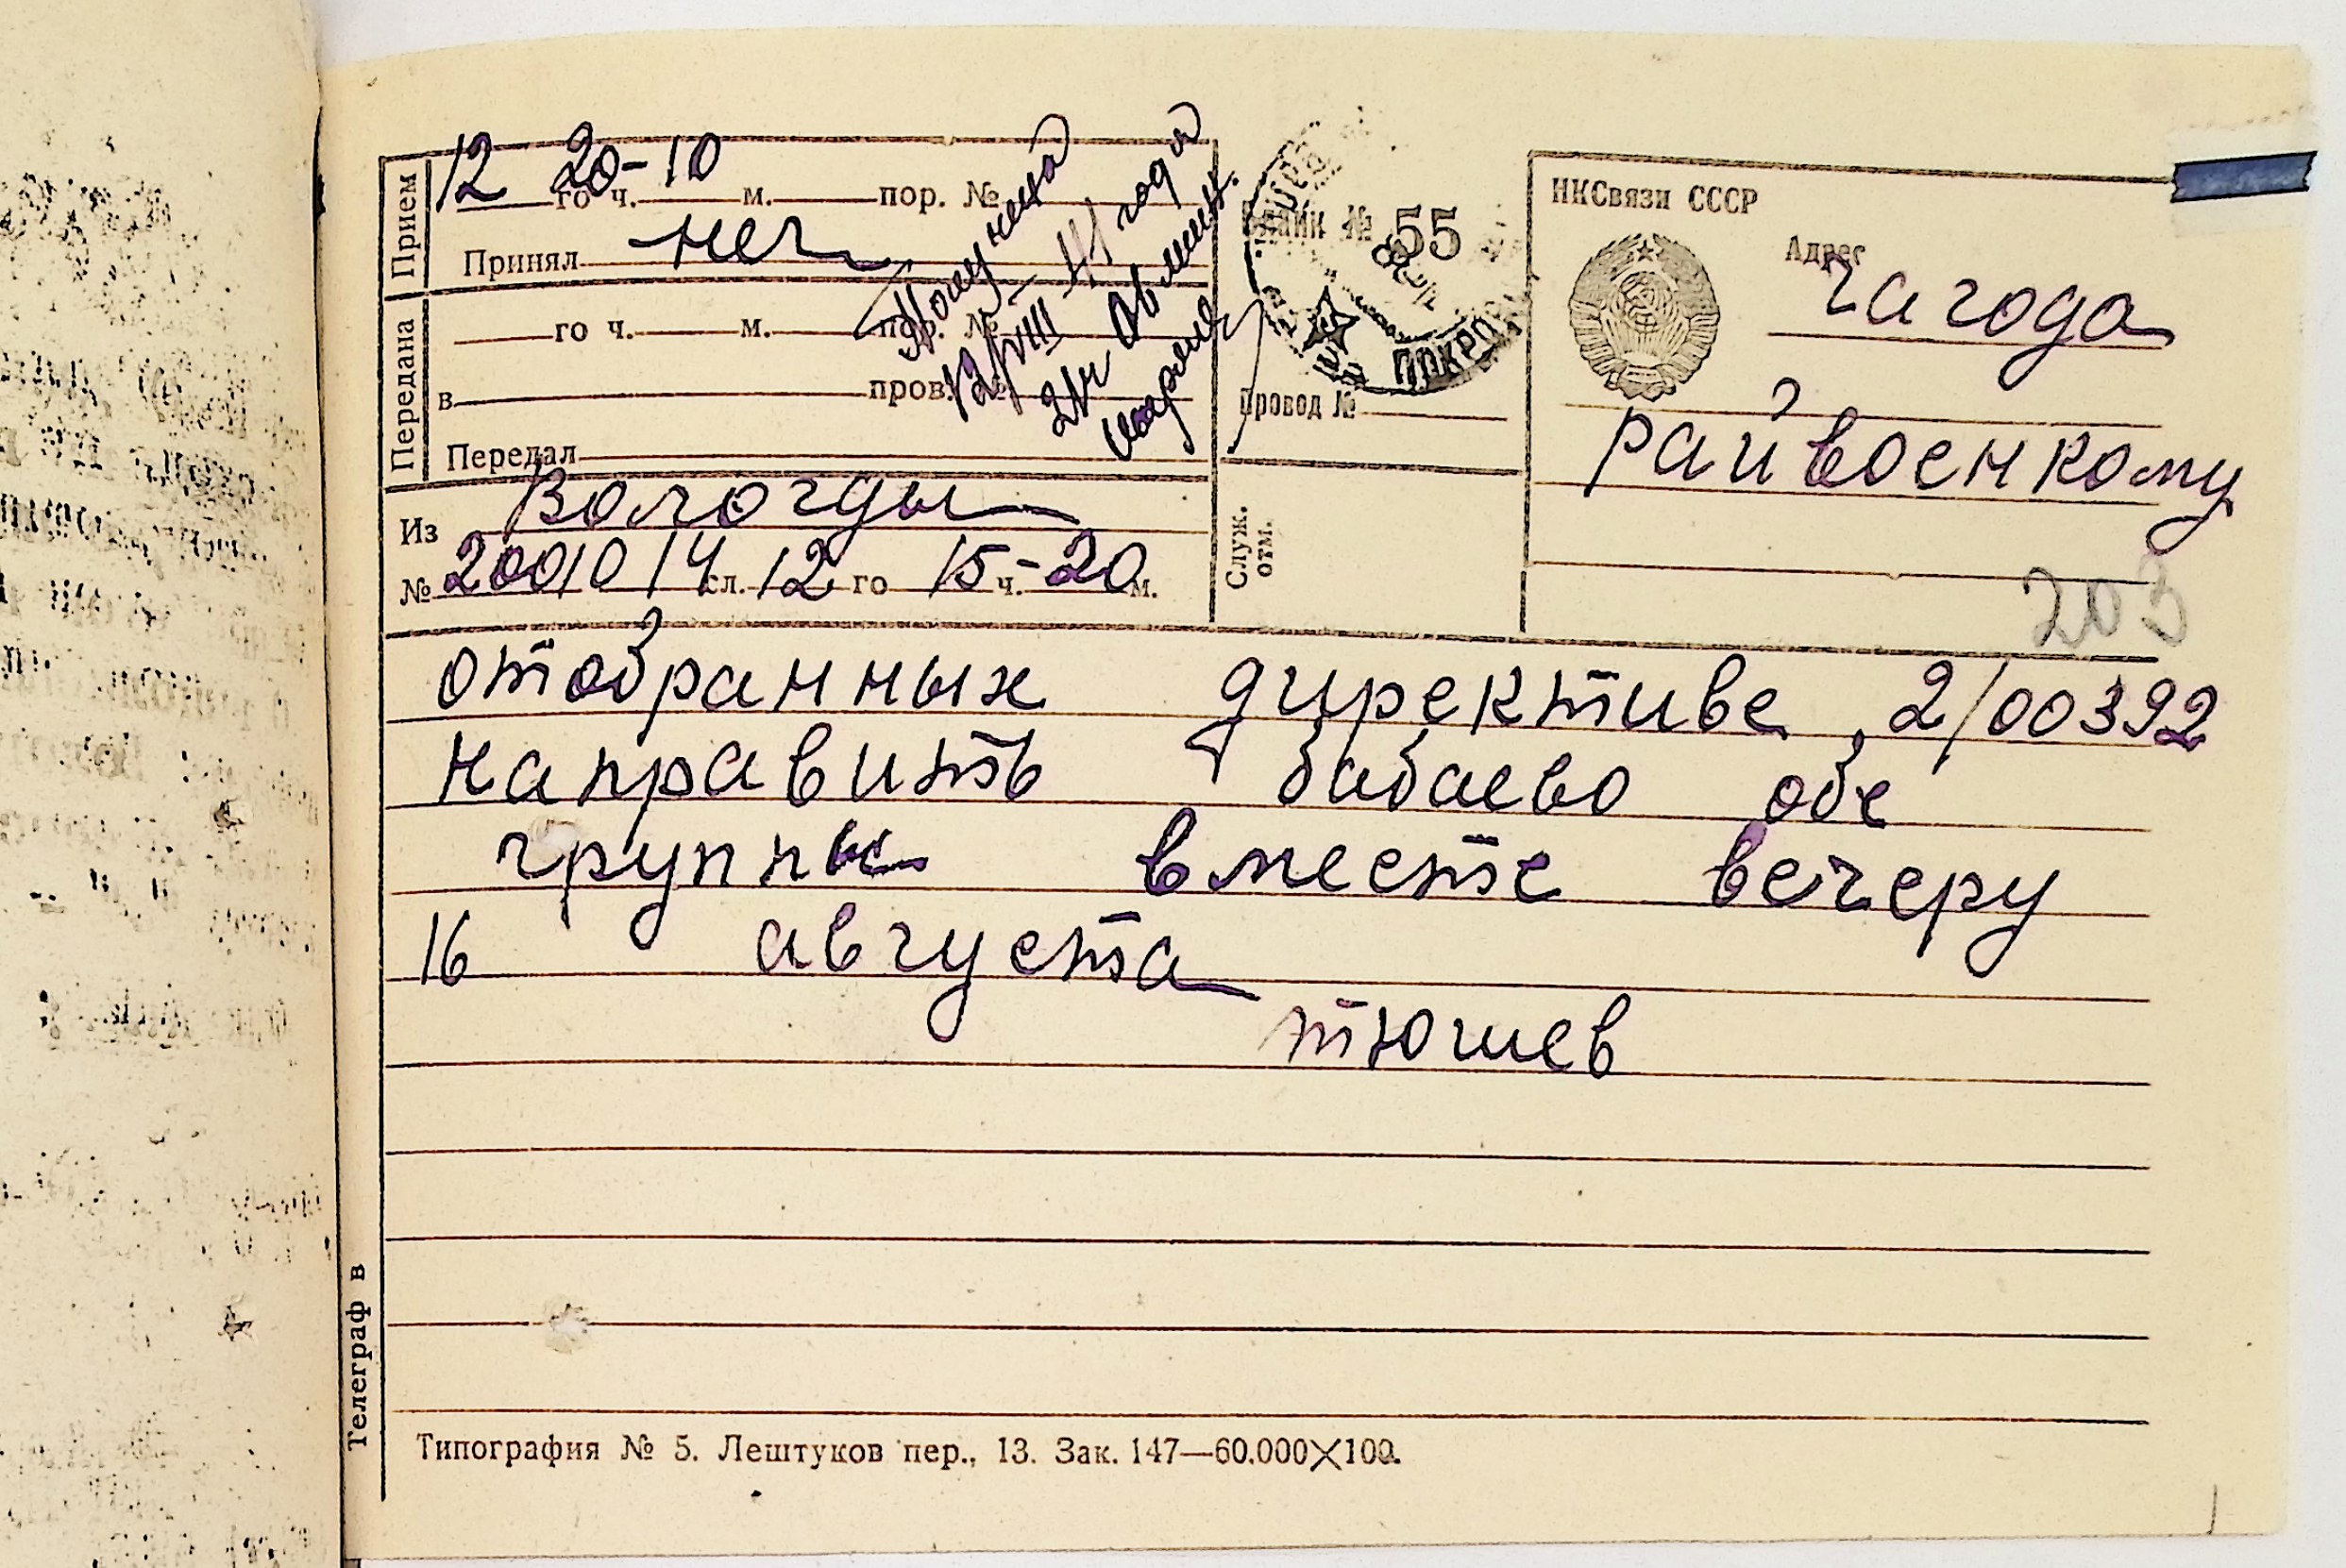 Прием
12 го 20 ч. - 10 м. пор. №
Принял
Передана
го ч. м. пор. №
в пров. №
Передал
Получена
12/VIII - 41 года
21 ч мин.
Из Вологды
№ 20010 14 сл. 12 го 15 ч. - 20 м.
Бланк № 55
ПОКРО
Провод №
Служ. отм.
НКСвязи СССР
Адрес
Чагода
райвоенкому
203
отобранных директиве 2/00392
направить бабаево обе
группы вместе вечеру
16 августа
тюшев
Телеграф в
Типография № 5. Лештуков пер., 13. Зак. 147—60.000×100.